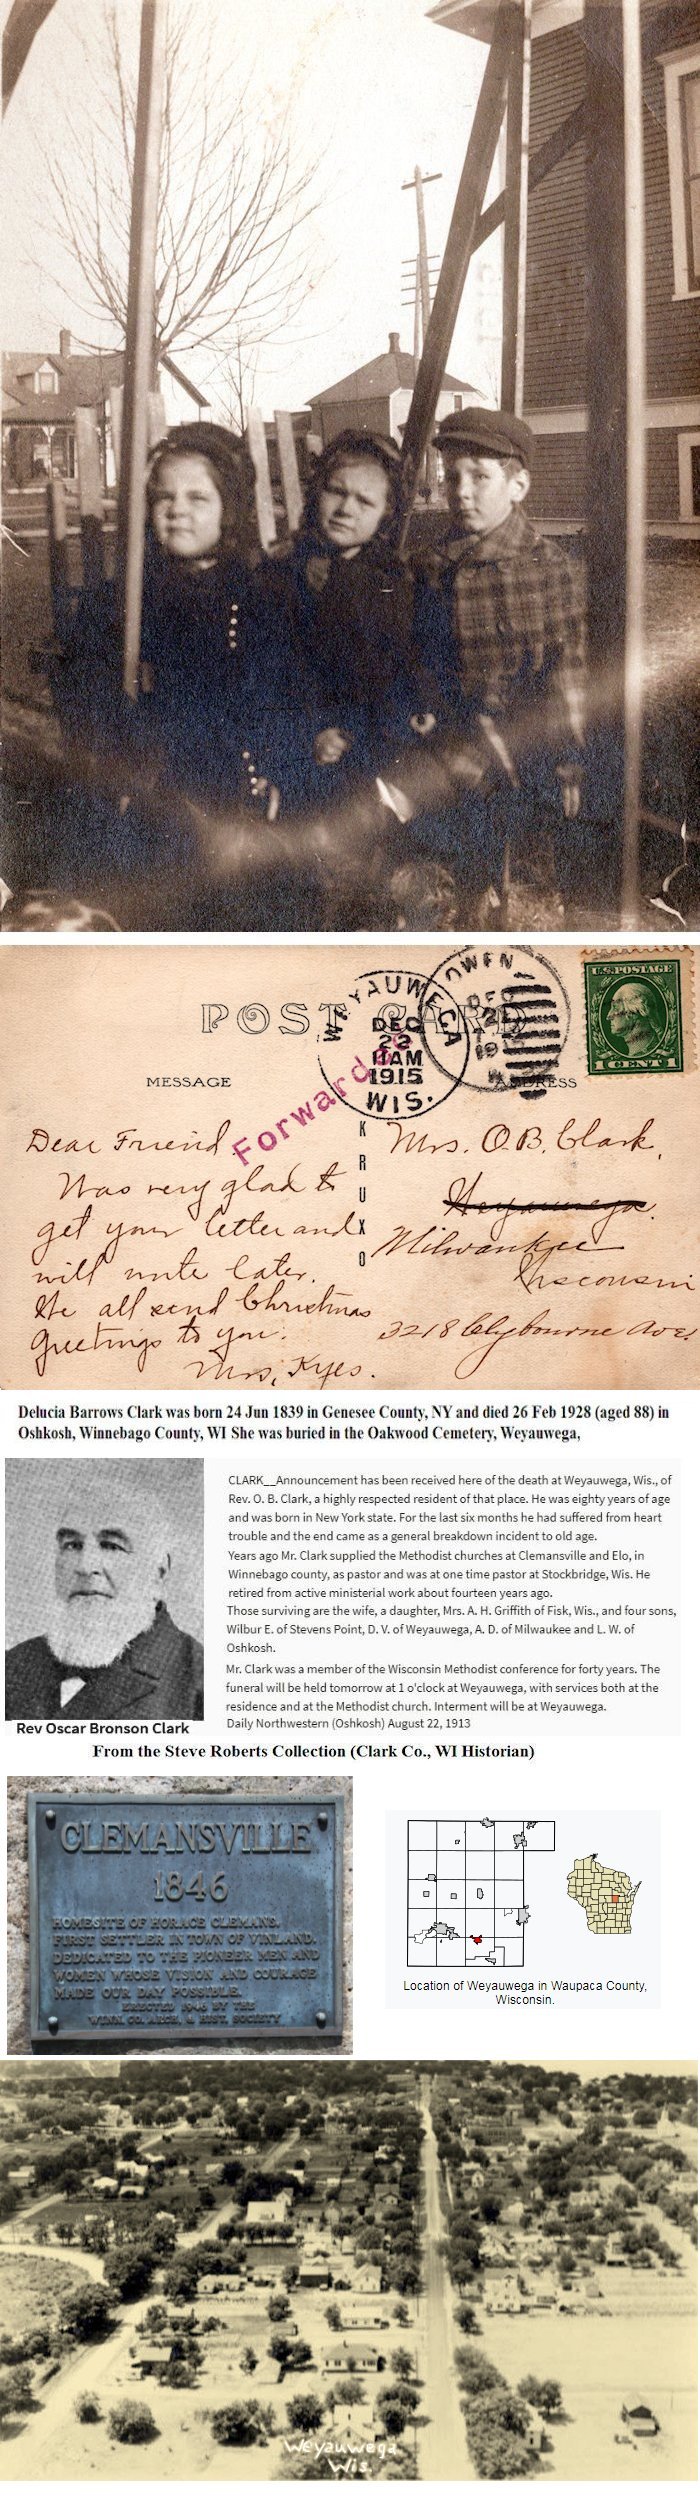 POST CARD
WAYAUWEGA
DEC
22
11AM
1915
WIS.
OWEN
DEC
U.S. POSTAGE
1 CENT 1
Forwarded
MESSAGE
ADDRESS
KRUXO
Dear Friend
Was very glad to
get your letter and
will write later.
We all send Christmas
Greetings to you.
Mrs. Kyes.
Mrs. O.B. Clark,
Weyauwega.
Milwaukee
Wisconsin
3218 Clybourne Ave.
Delucia Barrows Clark was born 24 Jun 1839 in Genesee County, NY and died 26 Feb 1928 (aged 88) in
Oshkosh, Winnebago County, WI She was buried in the Oakwood Cemetery, Weyauwega,
CLARK__Announcement has been received here of the death at Weyauwega, Wis., of
Rev. O. B. Clark, a highly respected resident of that place. He was eighty years of age
and was born in New York state. For the last six months he had suffered from heart
trouble and the end came as a general breakdown incident to old age.
Years ago Mr. Clark supplied the Methodist churches at Clemansville and Elo, in
Winnebago county, as pastor and was at one time pastor at Stockbridge, Wis. He
retired from active ministerial work about fourteen years ago.
Those surviving are the wife, a daughter, Mrs. A. H. Griffith of Fisk, Wis., and four sons,
Wilbur E. of Stevens Point, D. V. of Weyauwega, A. D. of Milwaukee and L. W. of
Oshkosh.
Mr. Clark was a member of the Wisconsin Methodist conference for forty years. The
funeral will be held tomorrow at 1 o'clock at Weyauwega, with services both at the
residence and at the Methodist church. Interment will be at Weyauwega.
Daily Northwestern (Oshkosh) August 22, 1913
Rev Oscar Bronson Clark
From the Steve Roberts Collection (Clark Co., WI Historian)
CLEMANSVILLE
1846
HOMESITE OF HORACE CLEMANS.
FIRST SETTLER IN TOWN OF VINLAND.
DEDICATED TO THE PIONEER MEN AND
WOMEN WHOSE VISION AND COURAGE
MADE OUR DAY POSSIBLE.
ERECTED 1946 BY THE
WINN. CO. ARCH. & HIST. SOCIETY
Location of Weyauwega in Waupaca County,
Wisconsin.
Weyauwega
Wis.